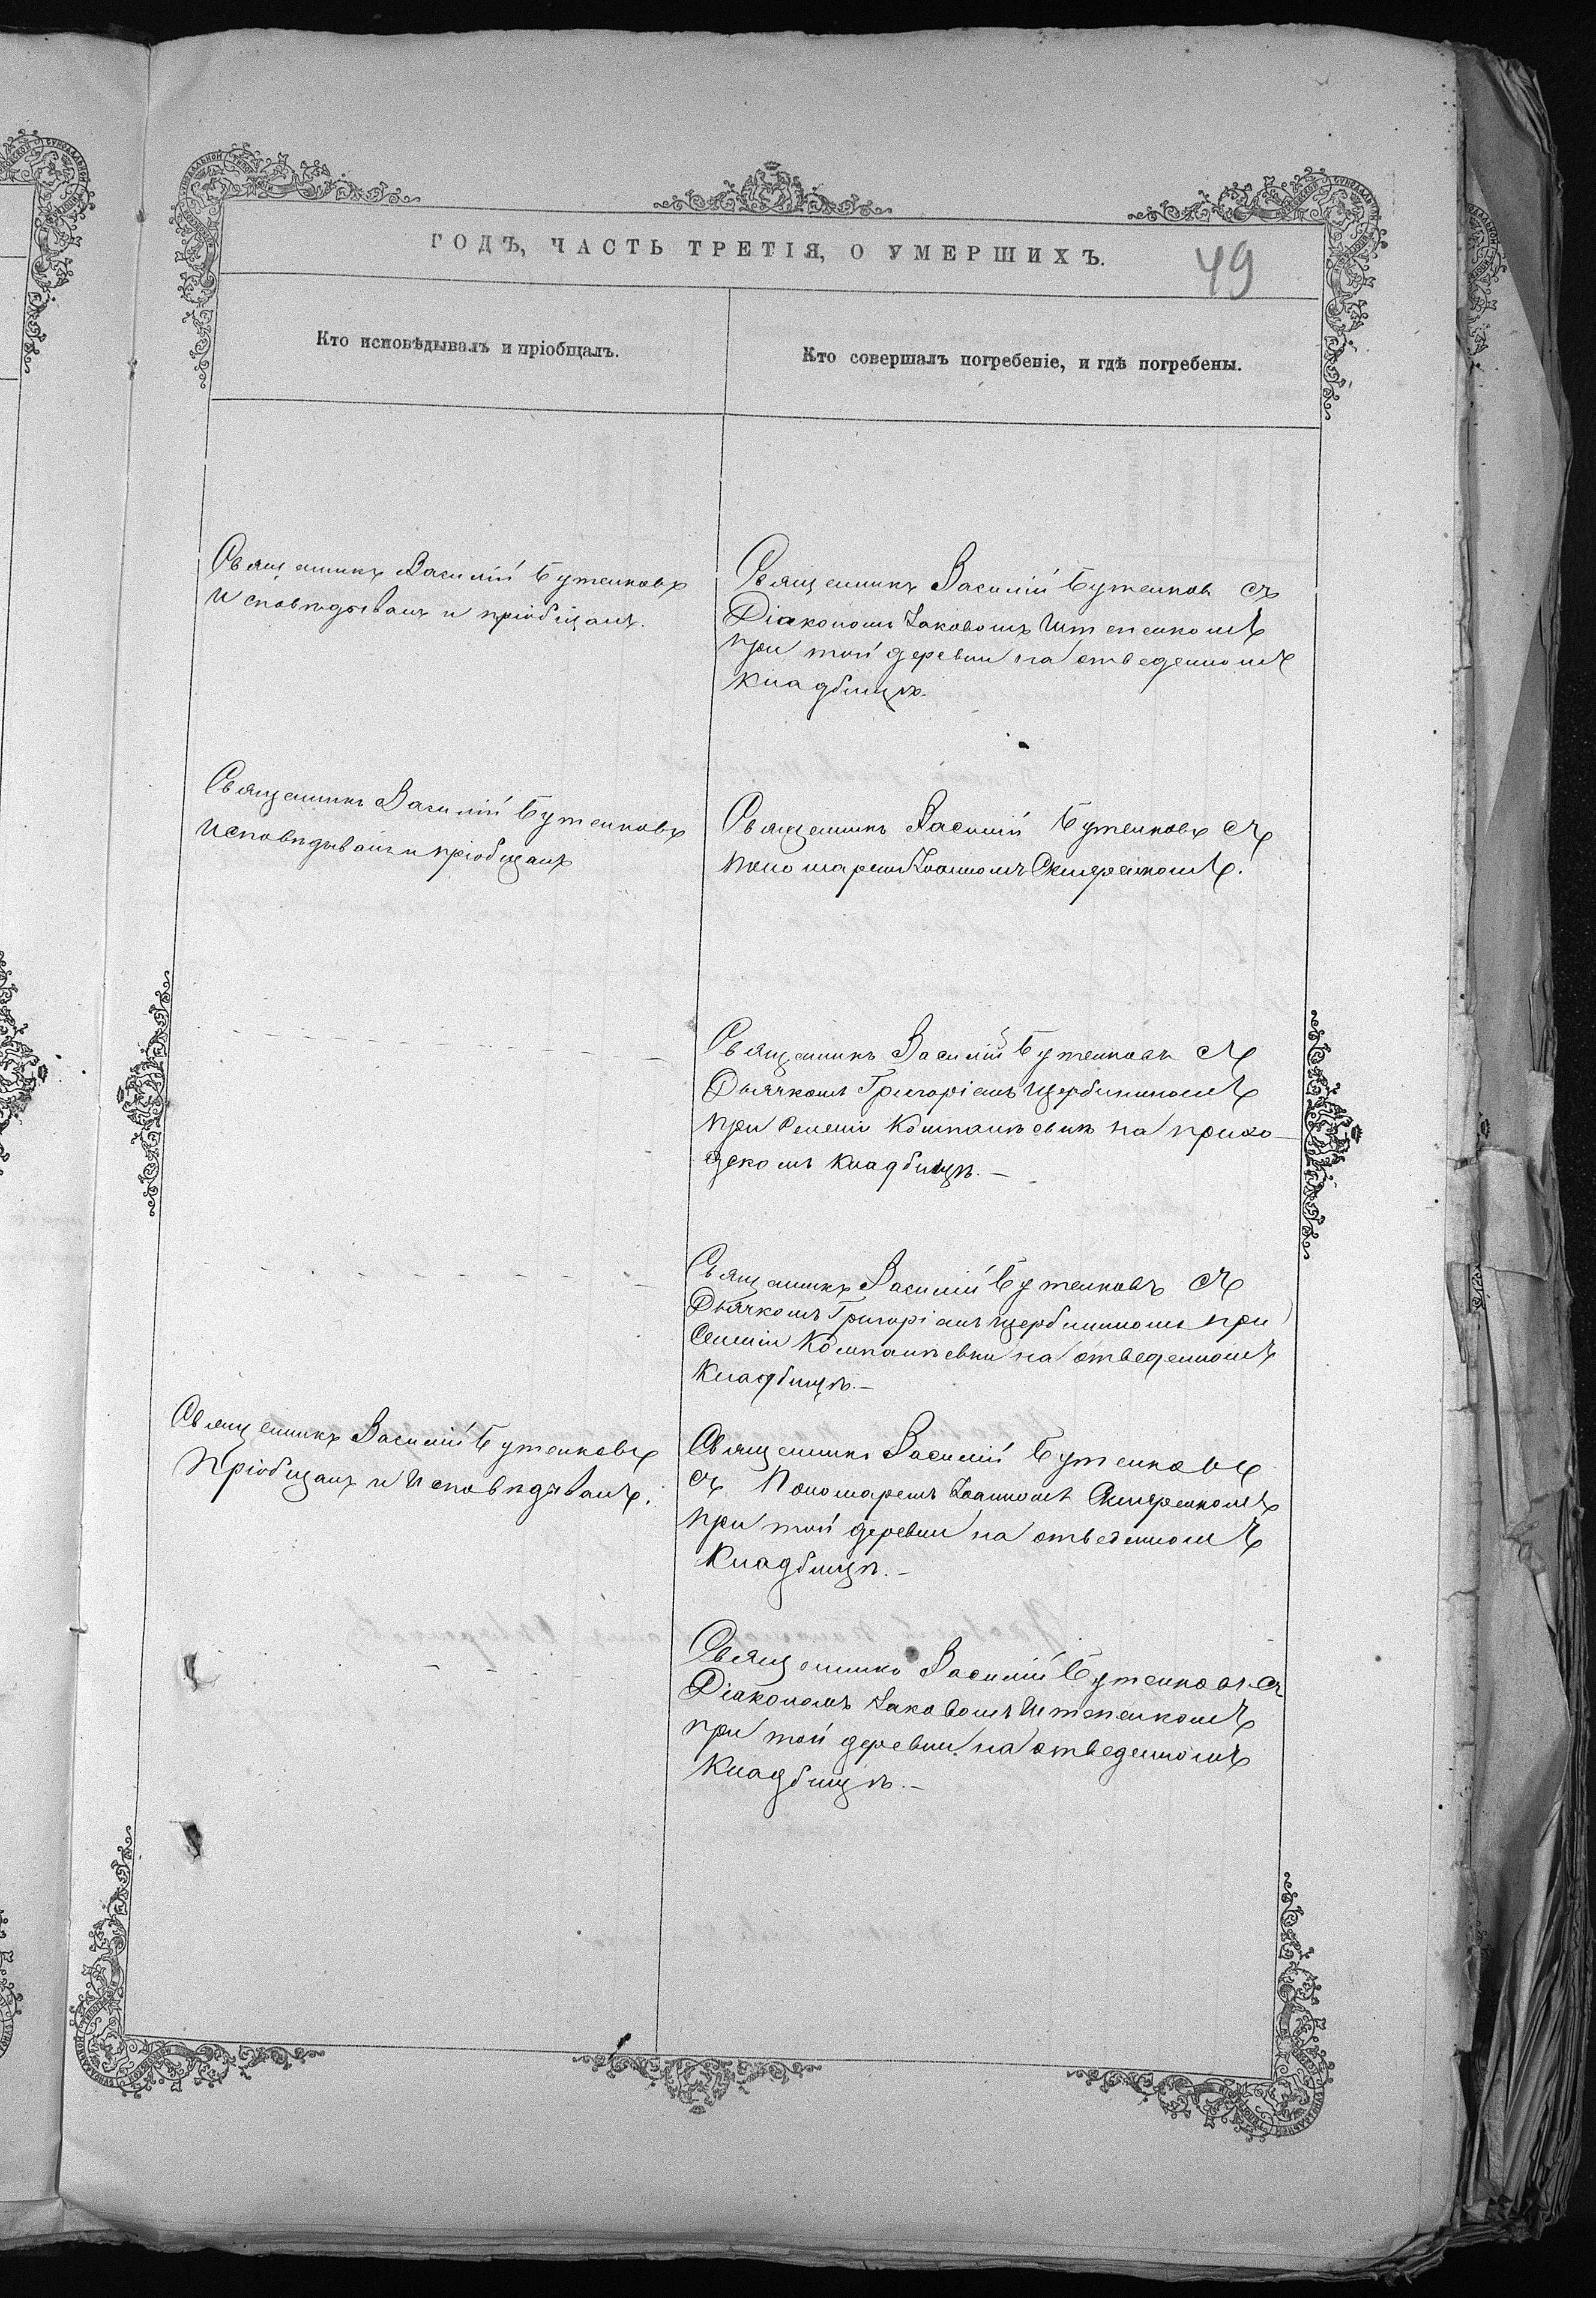 ГОДЪ, ЧАСТЬ ТРЕТІЯ, О УМЕРШИХЪ.
49
Кто исповѣдывалъ и пріобщалъ.
Кто совершалъ погребеніе, и гдѣ погребены.
Священникъ Василій Бутенковъ
Исповѣдывалъ и пріобщалъ.
Священникъ Василій Бутенков съ
Діакономъ Іаковомъ Штепенкомъ
при той деревни на отведенномъ
кладбищѣ.
Священникъ Василій Бутенковъ
Исповѣдывалъ и пріобщалъ
Священникъ Василій Бутенковъ съ
Пономаремъ Іоанномъ Скляренкомъ.
Священникъ Василій Бутенковъ съ
Дьячкомъ Григоріемъ Щербининомъ
при Селеніи Компанѣевкѣ на прихо-
дскомъ кладбищѣ. -
Священникъ Василій Бутенковъ съ
Дьячкомъ Григоріемъ Щербининомъ при
Селеніи Компанѣевки на отведенномъ
Кладбищѣ. -
Священникъ Василій Бутенковъ
Пріобщалъ и Исповѣдывалъ.
Священникъ Василій Бутенковъ
съ Пономаремъ Іоанномъ Скляренкомъ
при той деревни на отведенномъ
Кладбищѣ. -
Священникъ Василій Бутенковъ съ
Діакономъ Іаковомъ Штепенкомъ
при той деревни на отведенномъ
Кладбищѣ. -